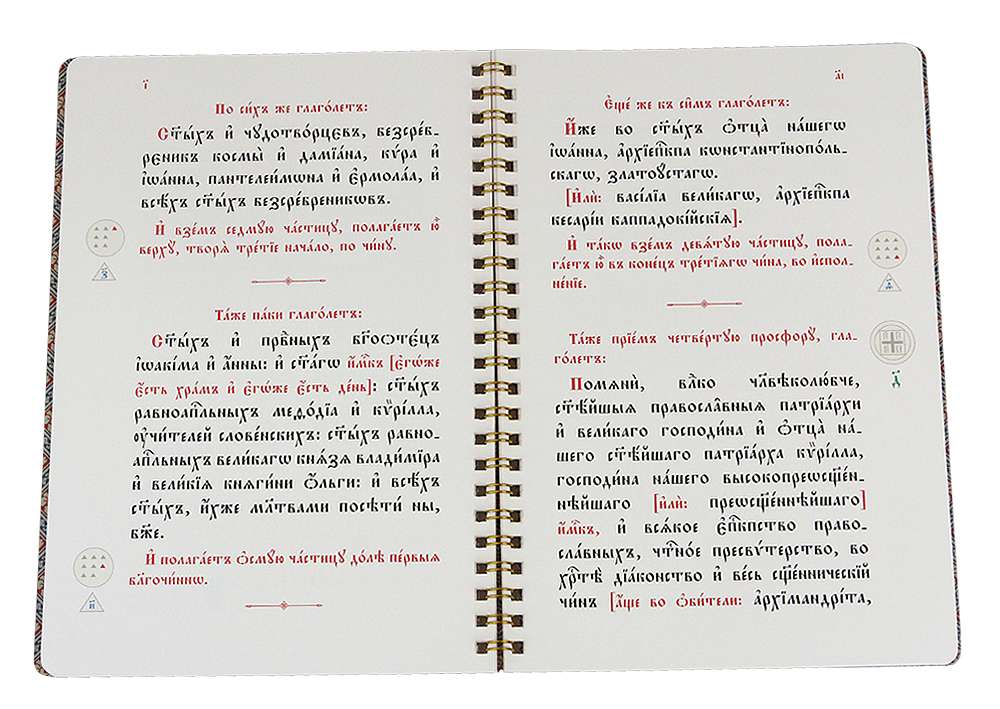 і҃
По си́хъ же глаго́летъ:
Ст҃ы́хъ и҆ чꙋдотво́рцєвъ, безсре́б-
рєникъ космы̀ и҆ дамїа́на, кѵ́ра и҆
і҆ѡа́нна, пантелеи́мѡна и҆ є҆рмола́а, и҆
всѣ́хъ ст҃ы́хъ безсре́бреникѡвъ.
И҆ взе́мъ седмꙋ́ю части́цꙋ, полага́етъ ю҆̀
верхꙋ̀, творѧ̀ тре́тїе нача́ло, по чи́нꙋ.
з҃
Та́же па́ки глаго́летъ:
Ст҃ы́хъ и҆ прв҃ныхъ бг҃оѻте́цъ
і҆ѡакі́ма и҆ а҆́нны: и҆ ст҃а́гѡ и҆́мⷬ҇къ [є҆гѡ́же
є҆́сть хра́мъ и҆ є҆гѡ́же є҆́сть де́нь]: ст҃ы́хъ
равноапⷭ҇льныхъ меѳо́дїа и҆ кѷрі́лла,
ᲂу҆чи́телей слове́нскихъ: ст҃ы́хъ равно-
апⷭ҇льныхъ вели́кагѡ кнѧ́зѧ влади́мїра
и҆ вели́кїѧ княги́ни ѻ҆́льги: и҆ всѣ́хъ
ст҃ы́хъ, и҆́хже мл҃твами посѣти́ ны,
бж҃е.
И҆ полага́етъ ѻ҆смꙋ́ю части́цꙋ до́лѣ пе́рвыѧ
бл҃гочи́ннѡ.
и҃
а҃і
Є҆ще́ же къ си̑мъ глаго́летъ:
И҆́же во ст҃ы́хъ ѻ҆тца̀ на́шегѡ
і҆ѡа́нна, а҆рхїепⷭ҇кпа кѡнстантїнопо́ль-
скагѡ, златоꙋ́стагѡ.
[И҆лѝ: васі́лїа вели́кагѡ, а҆рхїепⷭ҇кпа
кесарі́и каппадокі́йскїѧ].
И҆ та́кѡ взе́мъ девѧ́тꙋю части́цꙋ, пола-
га́етъ ю҆̀ въ коне́цъ тре́тїѧгѡ чи́на, во и҆спол-
не́нїе.
Та́же прїе́мъ четве́ртꙋю просфорꙋ̀, гла-
го́летъ:
д҃
Помѧнѝ, влⷣко чл҃вѣколю́бче,
ст҃ѣ́йшыѧ правосла̑вныѧ патрїа́рхи
и҆ вели́каго господи́на и҆ ѻ҆тца̀ на́-
шего ст҃ѣ́йшаго патрїа́рха кѷрі́лла,
господи́на на́шего высокопреѡсщ҃е́н-
нѣйшаго [и҆лѝ: преѡсщ҃е́ннѣйшаго]
и҆́мⷬ҇къ, и҆ всѧ́кое є҆пⷭ҇кпство право-
сла́вныхъ, чтⷭ҇но́е пресвѵ́терство, во
хрⷭ҇тѣ̀ дїа́конство и҆ ве́сь сщ҃е́нническїй
чи́нъ [а҆́ще во ѻ҆би́тели: а҆рхїмандрі́та,